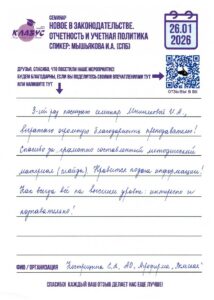 КЛАБУС
СЕМИНАР
НОВОЕ В ЗАКОНОДАТЕЛЬСТВЕ.
ОТЧЕТНОСТЬ И УЧЕТНАЯ ПОЛИТИКА
СПИКЕР: МЫШЬЯКОВА И.А. (СПБ)
26.01
2026
ДРУЗЬЯ, СПАСИБО, ЧТО ПОСЕТИЛИ НАШЕ МЕРОПРИЯТИЕ!
БУДЕМ БЛАГОДАРНЫ, ЕСЛИ ВЫ ПОДЕЛИТЕСЬ СВОИМИ ВПЕЧАТЛЕНИЯМИ ТУТ
ИЛИ НАПИШИТЕ ТУТ
ОТЗЫВЫ В ВК
3-ий раз посещаю семинар Мышьяковой И.А.,
выражаю огромную благодарность преподавателю!
Спасибо за грамотно составленный методический
материал (слайды). Нравится подача информации!
Как всегда всё на высшем уровне: интересно и
познавательно!
ФИО / ОРГАНИЗАЦИЯ С.А., АО
СПАСИБО! КАЖДЫЙ ВАШ ОТЗЫВ ДЕЛАЕТ НАС ЕЩЕ ЛУЧШЕ!